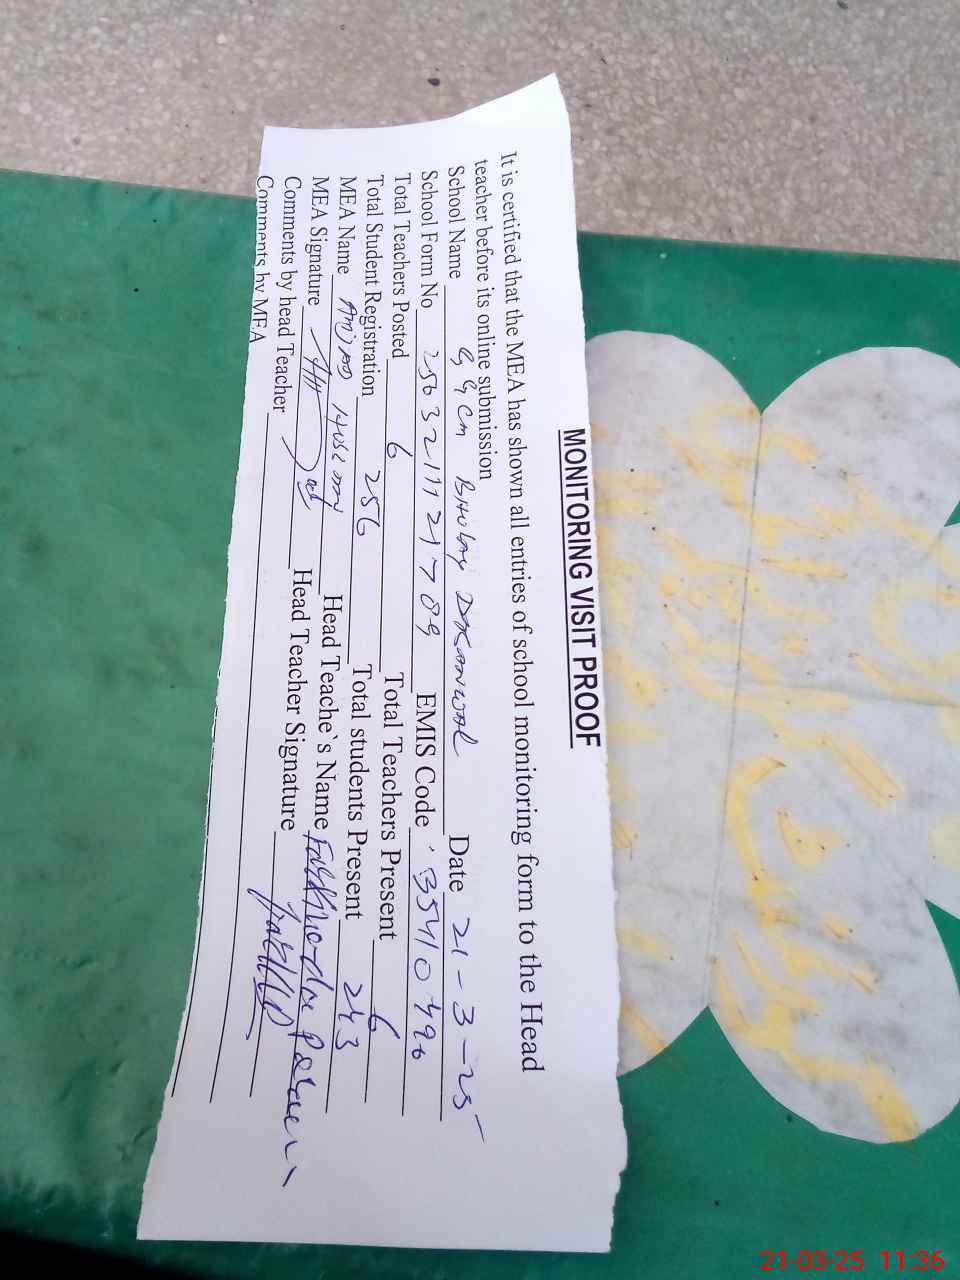 MONITORING VISIT PROOF
It is certified that the MEA has shown all entries of school monitoring form to the Head
teacher before its online submission
School Name G G CM Date 21-3-25
School Form No 2563211121789 EMIS Code 35410490
Total Teachers Posted 6 Total Teachers Present 6
Total Student Registration 256 Total students Present 243
MEA Name Amjad Hussain Head Teache`s Name
MEA Signature Head Teacher Signature
Comments by head Teacher
Comments by MEA
21-03-25 11:36